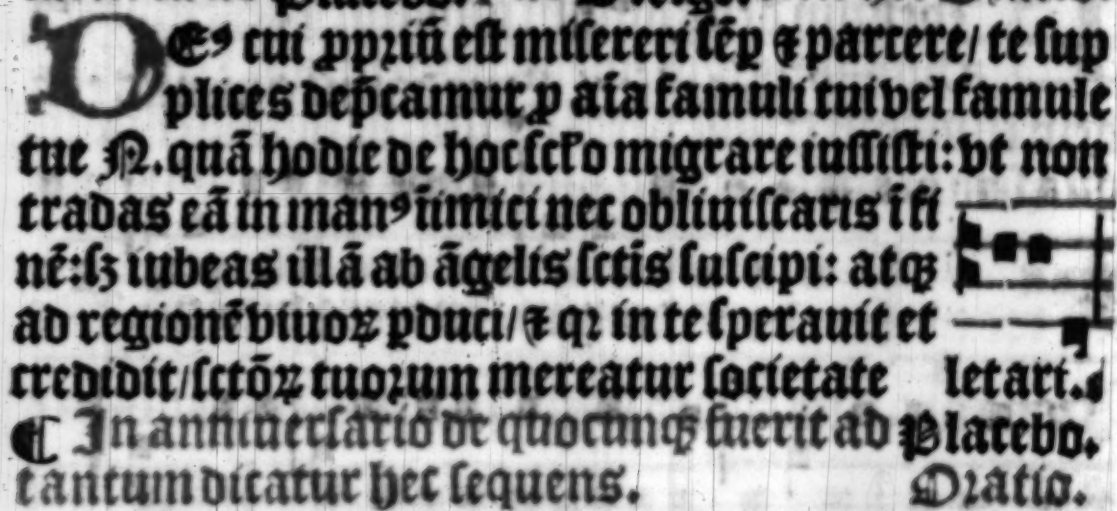 DEꝰ cui ꝓpriū est misereri sēp ⁊ parcere/ te sup
plices dep̄camur ꝓ aīa famuli tui vel famule
tue N. quā hodie de hoc scƚo migrare iussisti: vt non
tradas eā in manꝰ inimici nec obliuiscaris ī fi
nē: sꝫ iubeas illā ab āgelis sctīs suscipi: atqꝫ
ad regionē viuoꝝ ꝑduci/ ⁊ qꝛ in te sperauit et
credidit/ sctōꝝ tuorum mereatur societate letari.
¶ In anniuersario dr̄ quocunqꝫ fuerit ad Placebo.
tantum dicatur hec sequens. Oratio.